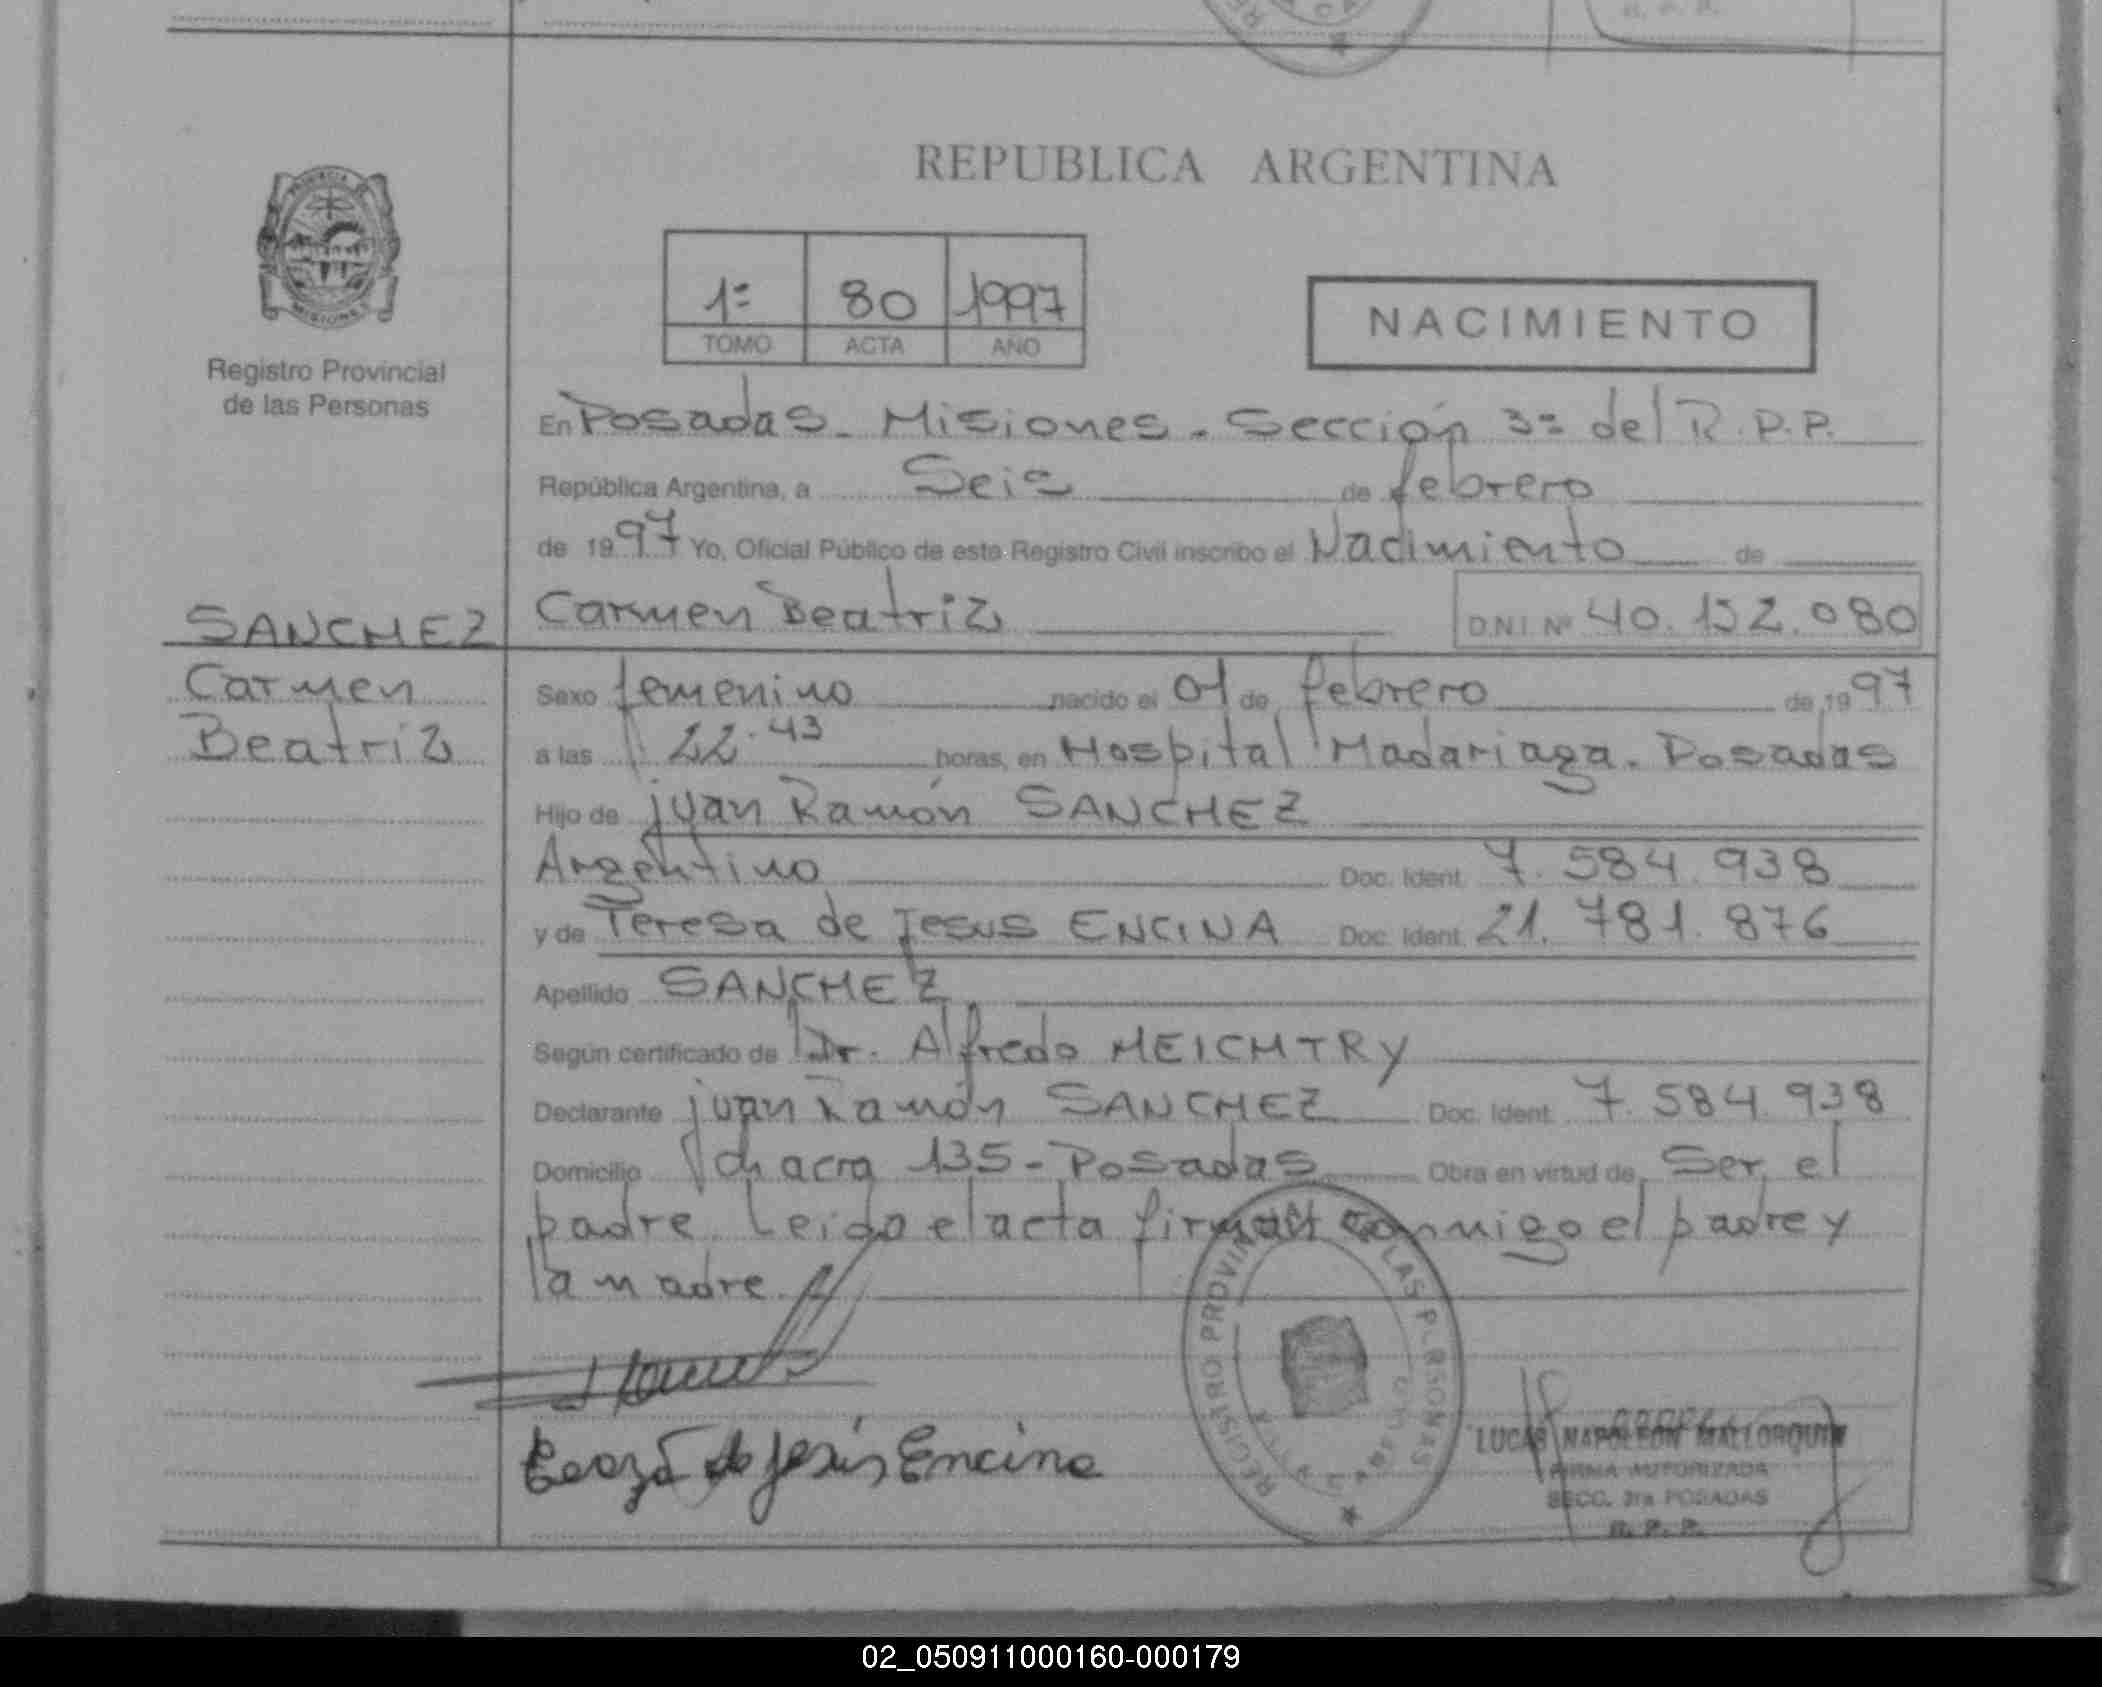 REPUBLICA ARGENTINA
PROVINCIA DE
MISIONES
Registro Provincial
de las Personas
1º 80 1997
TOMO ACTA AÑO
NACIMIENTO
En Posadas - Misiones - Sección 3ª del R.P.P.
República Argentina, a Seis de febrero
de 1997 Yo, Oficial Público de este Registro Civil inscribo el Nacimiento de
SANCHEZ
Carmen
Beatriz
Carmen Beatriz D.N.I. Nº 40.152.080
Sexo femenino nacido el 01 de febrero de 1997
a las 22.43 horas, en Hospital Madariaga. Posadas
Hijo de Juan Ramón SANCHEZ
Argentino Doc. Ident. 7.584.938
y de Teresa de Jesus ENCINA Doc. Ident. 21.781.876
Apellido SANCHEZ
Según certificado de Dr. Alfredo MEICHTRY
Declarante Juan Ramón SANCHEZ Doc. Ident. 7.584.938
Domicilio chacra 135 - Posadas Obra en virtud de Ser el
padre Leido el acta firman conmigo el padre y
la madre
REGISTRO PROVIN LAS PERSONAS
de Jesús Encina
LUCAS NAPOLEON MALLORQUIN
FIRMA AUTORIZADA
SECC. 3ra POSADAS
R. P. P.
02_050911000160-000179